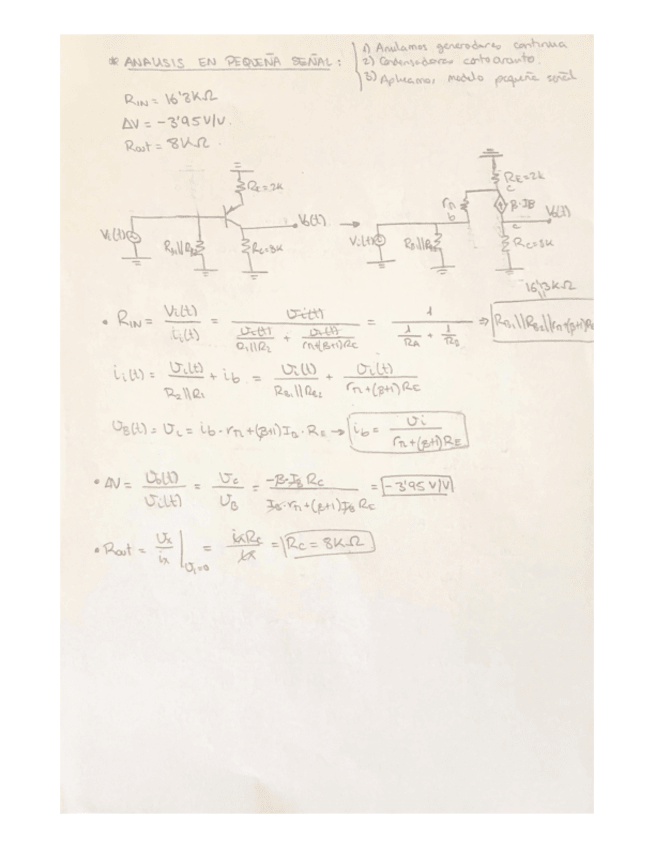 * ANALISIS EN PEQUEÑA SEÑAL:
1) Anulamos generadores continua
2) Condensadores cortocircuito.
3) Aplicamos modelo pequeña señal
RIN = 16'3KΩ
ΔV = -3'95 V/V.
Rout = 8KΩ.
RE=2K
Vi(t)
RB1||RB2
RC=8K
Vo(t)
RE=2K
c
rπ
b
β·IB
Vo(t)
Vi(t)
RB1||RB2
c
RC=8K
16'3KΩ
• RIN = Vi(t) / ii(t) = Vi(t) / (Vi(t) / R1||R2 + Vi(t) / rπ+(β+1)RC) = 1 / (1/RA + 1/RB) => RB1||RB2||rπ+(β+1)RE
ii(t) = Vi(t) / R2||R1 + ib = Vi(t) / RB1||RB2 + Vi(t) / rπ+(β+1)RC
VB(t) = Vi = ib·rπ+(β+1)IB·RE → ib = Vi / rπ+(β+1)RE
• ΔV = Vo(t) / Vi(t) = VC / VB = -β·IB RC / IB·rπ+(β+1)IB RC = -3'95 V/V
• Rout = Vx / ix | Vi=0 = ixRC / ix = RC = 8KΩ